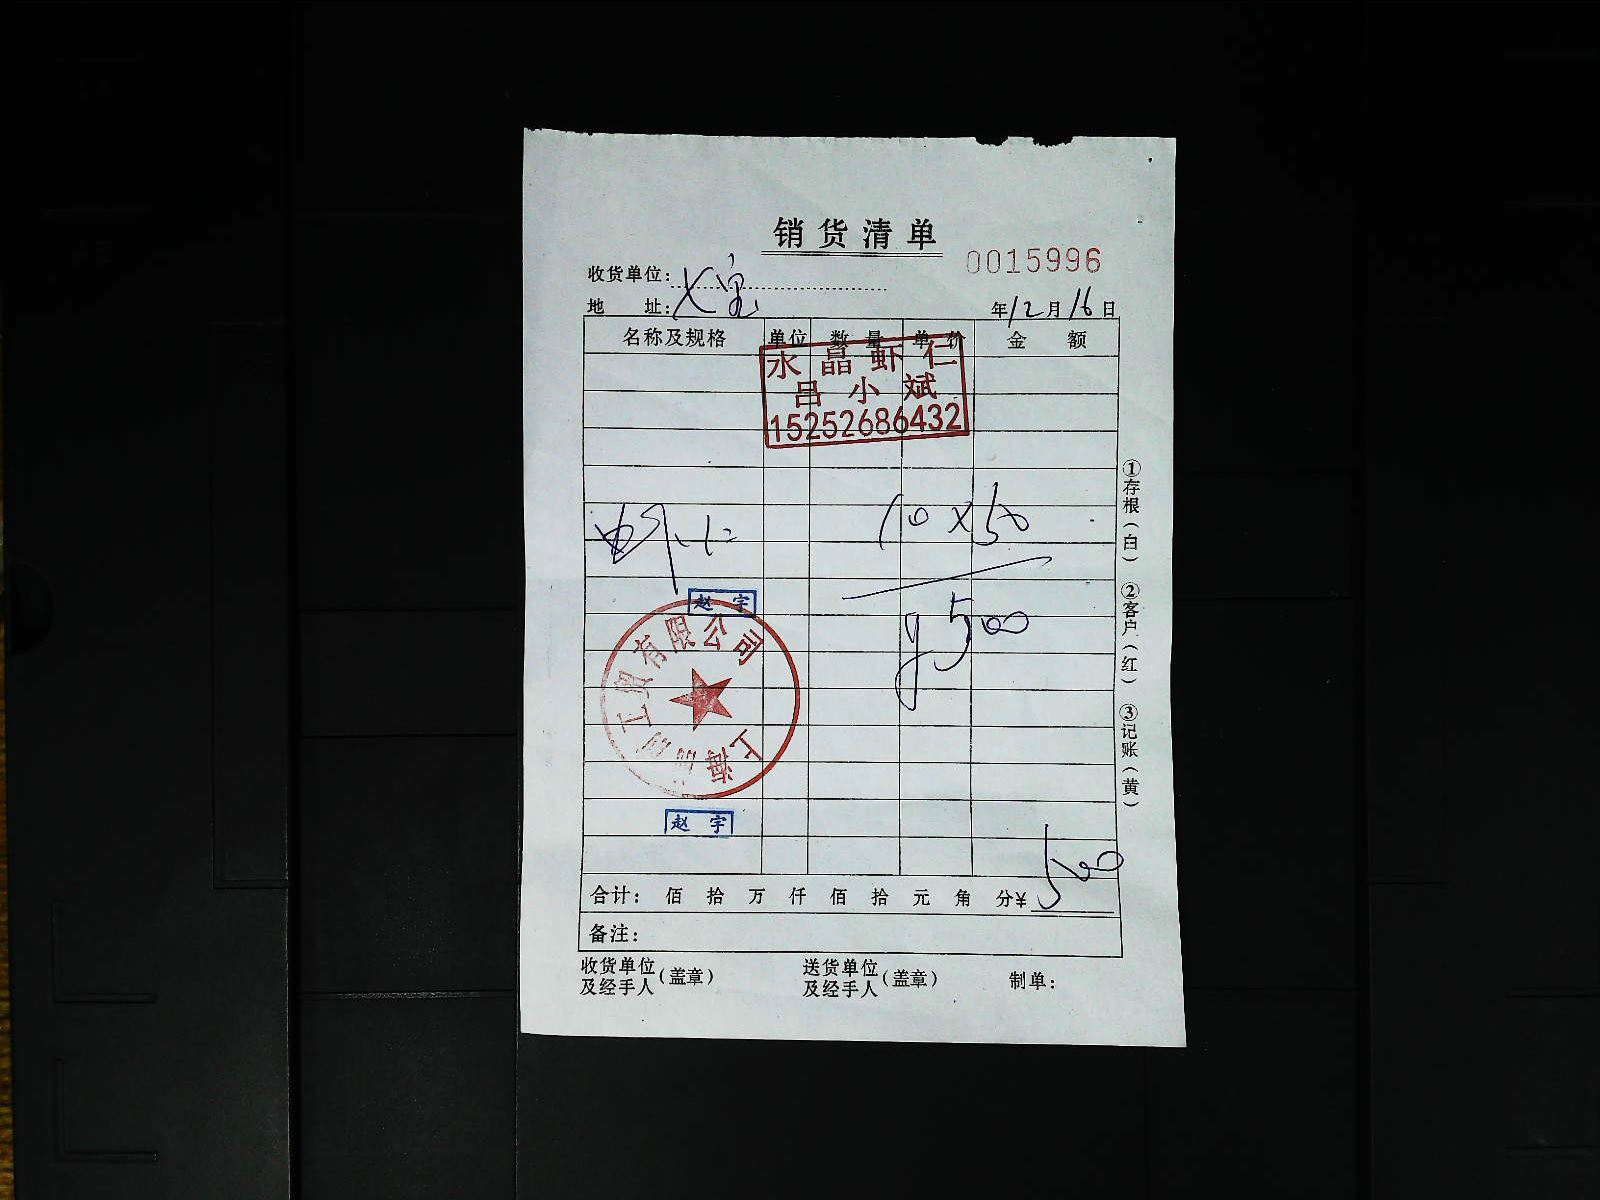 销货清单
0015996
收货单位:
地 址:
年12月16日
名称及规格 单位 数量 单价 金额
水晶虾仁
吕小斌
15252686432
虾仁 10×50
¥500
赵宇
上海 工贸有限公司
赵宇
合计: 佰 拾 万 仟 佰 拾 元 角 分¥ 500
备注:
收货单位及经手人(盖章) 送货单位及经手人(盖章) 制单:
①存根(白) ②客户(红) ③记账(黄)